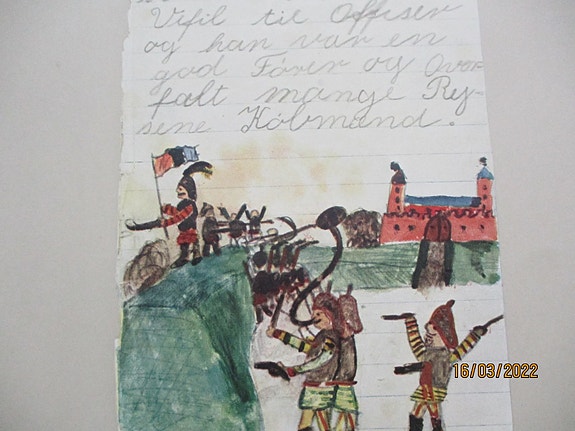 Vifil til Offiser
og han var en
god Förer og Over-
falt mange Rej-
sene Kobmand.
16/03/2022